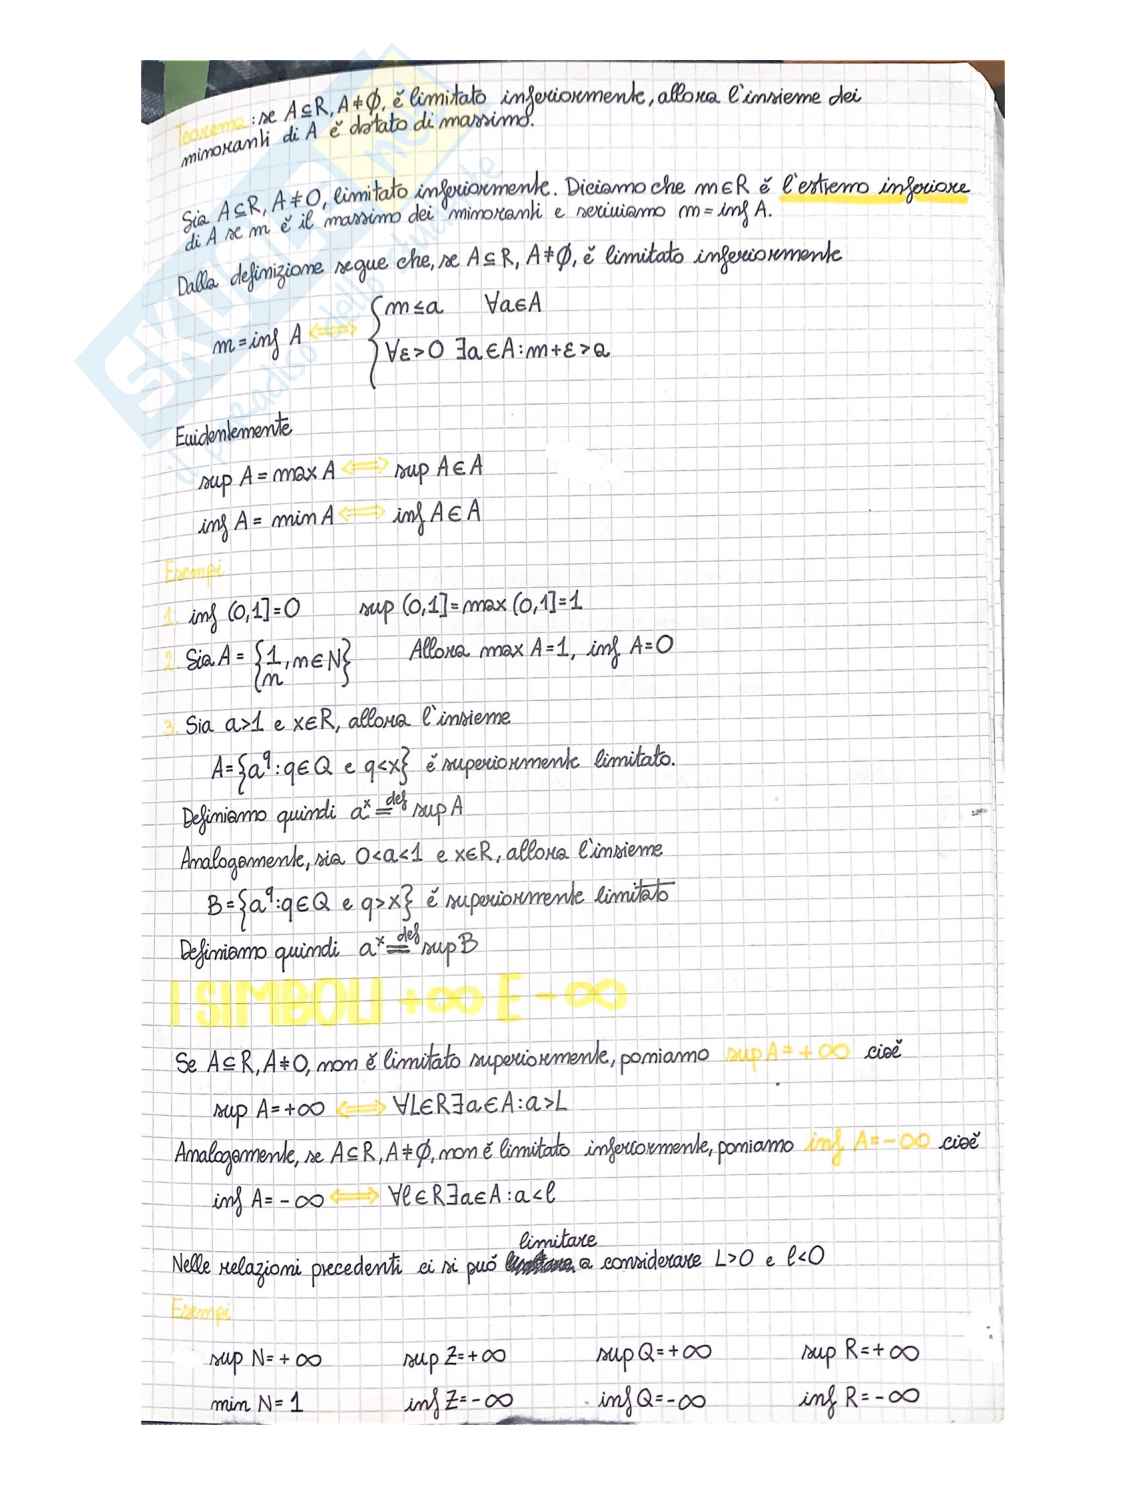 Teorema: se A⊆R, A≠∅, è limitato inferiormente, allora l'insieme dei
minoranti di A è dotato di massimo.
Sia A⊆R, A≠0, limitato inferiormente. Diciamo che m∈R è l'estremo inferiore
di A se m è il massimo dei minoranti e scriviamo m=inf A.
Dalla definizione segue che, se A⊆R, A≠∅, è limitato inferiormente
m=inf A ⟺ { m≤a ∀a∈A
∀ε>0 ∃a∈A: m+ε>a
Evidentemente
sup A = max A ⟺ sup A∈A
inf A = min A ⟺ inf A∈A
Esempi
1. inf (0,1]=0 sup (0,1]=max (0,1]=1
2. Sia A = {1/n, m∈N} Allora max A=1, inf A=0
3. Sia a>1 e x∈R, allora l'insieme
A={a^q: q∈Q e q<x} è superiormente limitato.
Definiamo quindi a^x =def sup A
Analogamente, sia 0<a<1 e x∈R, allora l'insieme
B={a^q: q∈Q e q>x} è superiormente limitato
Definiamo quindi a^x =def sup B
I SIMBOLI +∞ E -∞
Se A⊆R, A≠0, non è limitato superiormente, poniamo sup A=+∞ cioè
sup A=+∞ ⟺ ∀L∈R∃a∈A: a>L
Analogamente, se A⊆R, A≠∅, non è limitato inferiormente, poniamo inf A=-∞ cioè
inf A=-∞ ⟺ ∀l∈R∃a∈A: a<l
limitare
Nelle relazioni precedenti ci si può a considerare L>0 e l<0
Esempi
sup N=+∞ sup Z=+∞ sup Q=+∞ sup R=+∞
min N=1 inf Z=-∞ inf Q=-∞ inf R=-∞